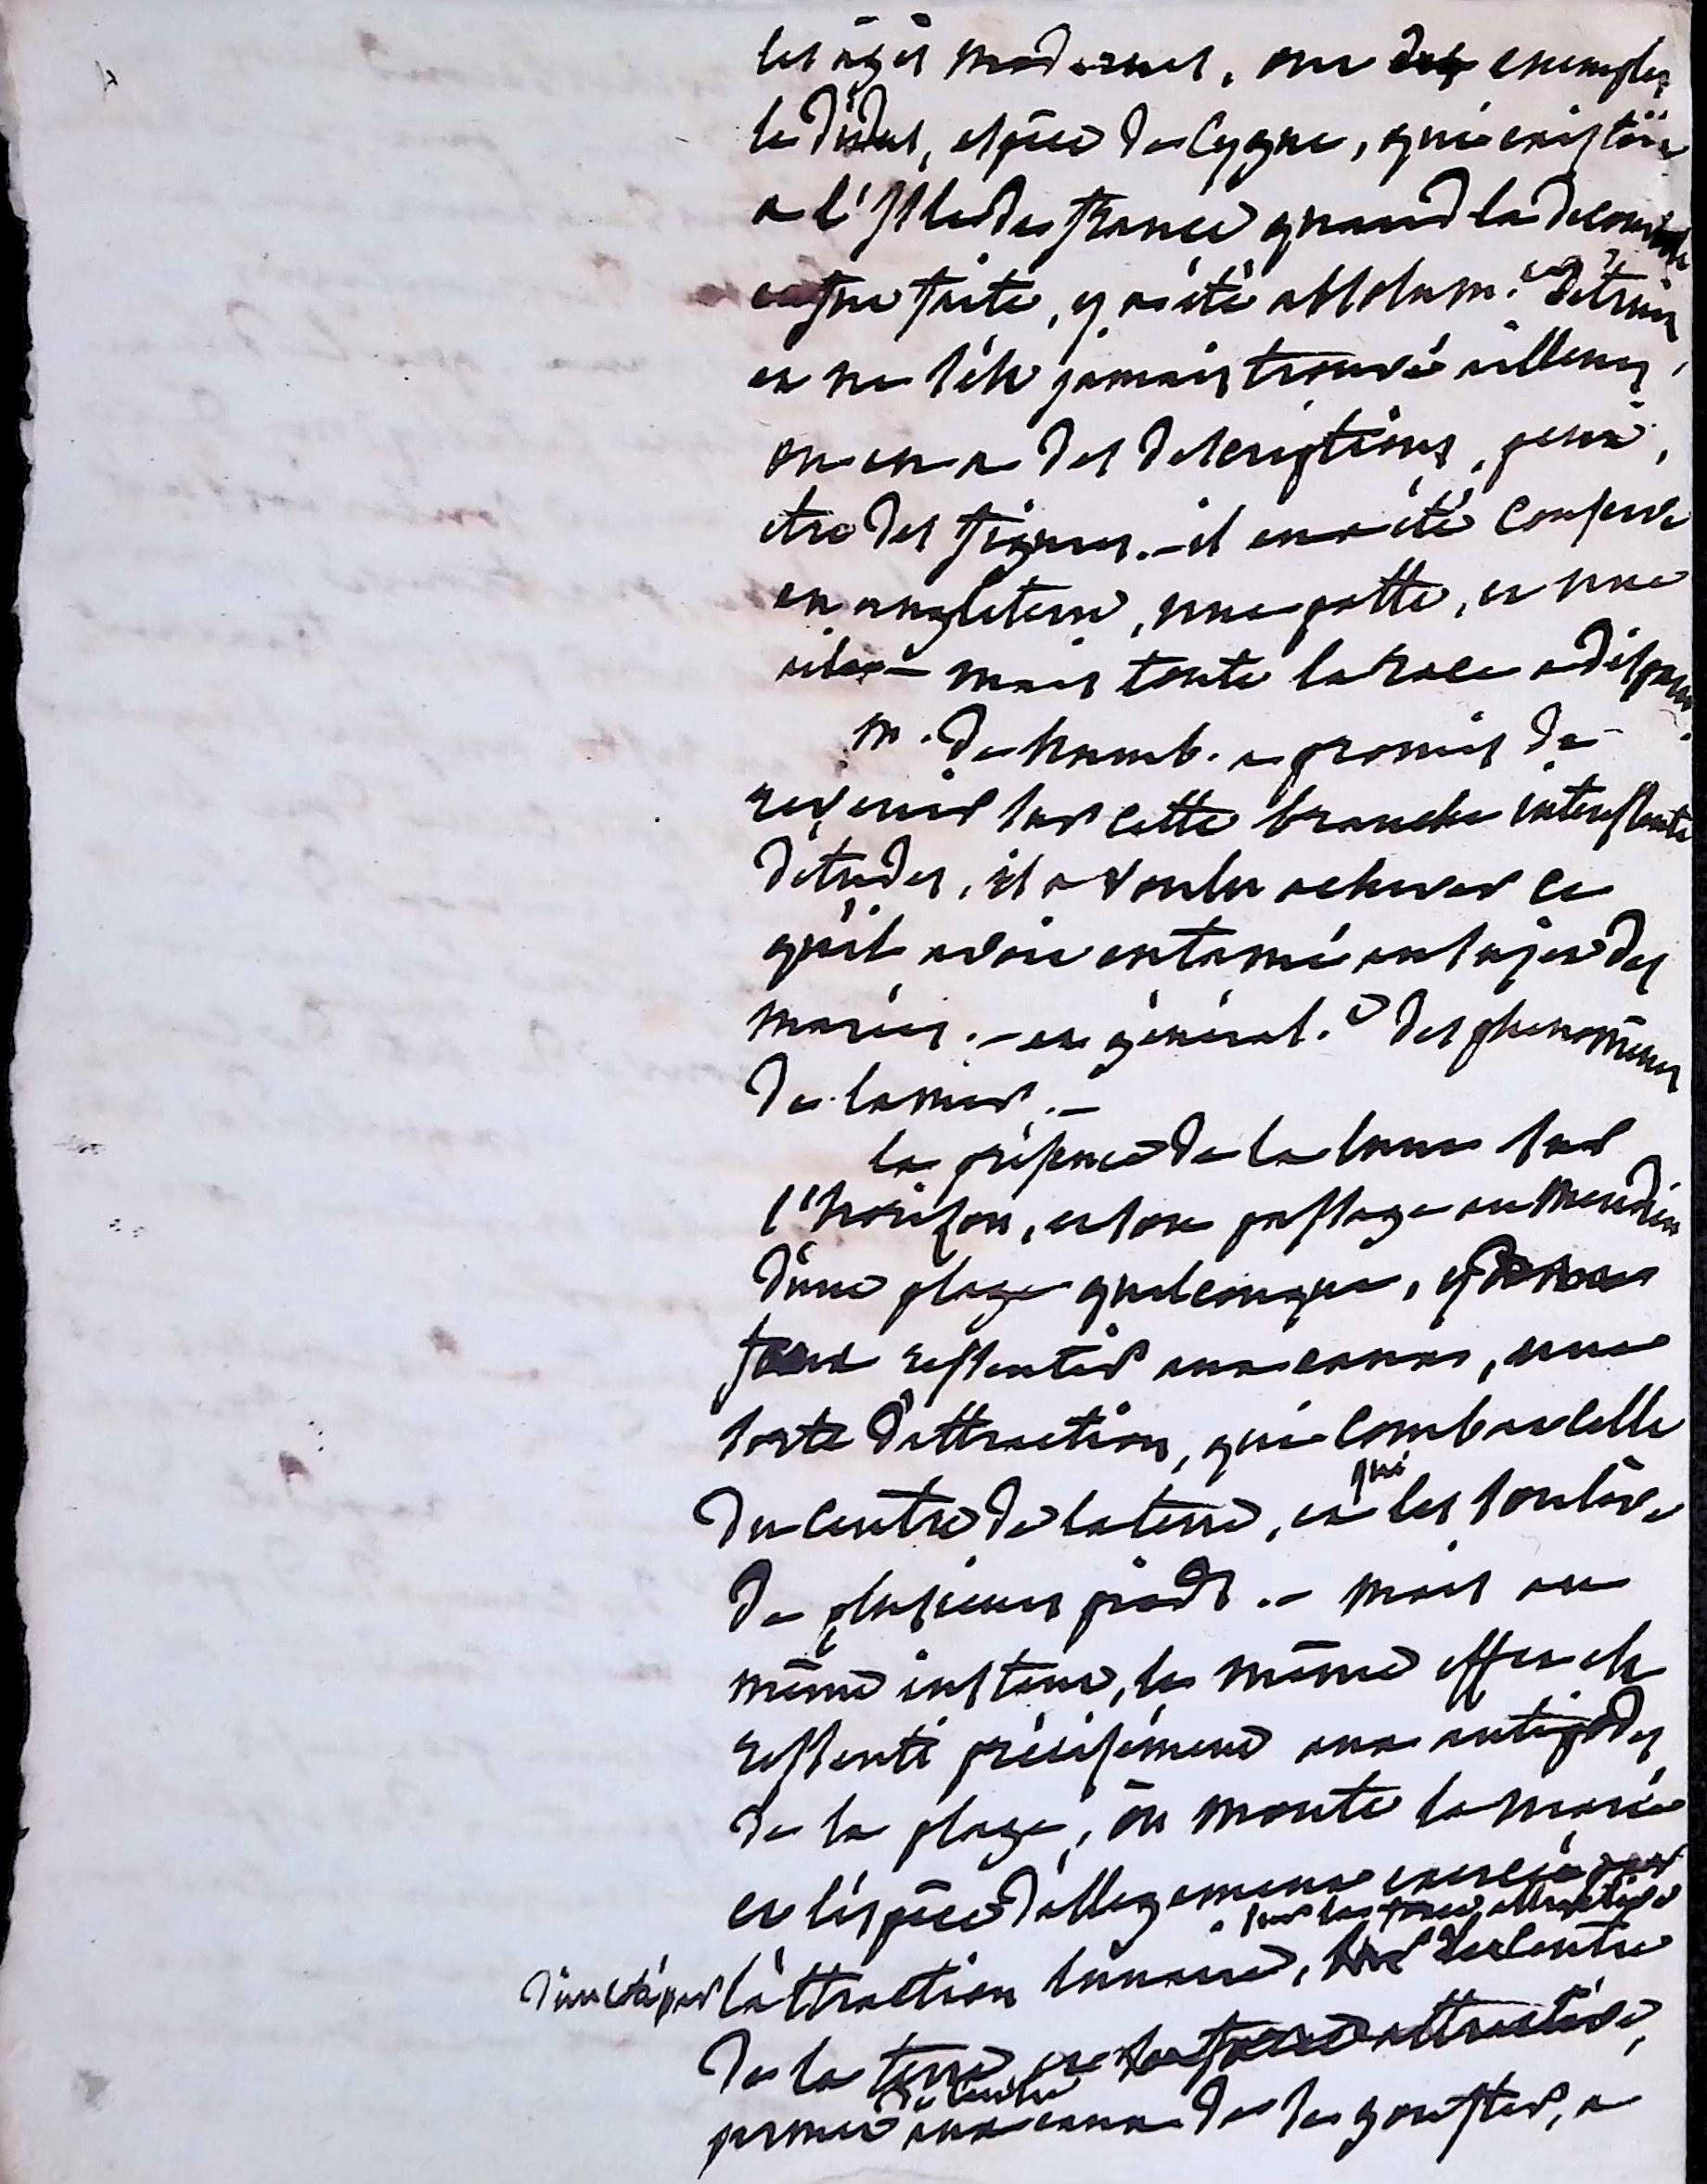 les ages modernes, on a des exemples,
le dudus, espéce de Cygne, qui existoit
a l'Isle de france quand la decouverte
en fut faite, y a été absolum.ent detruit
et ne s'est jamais trouvé ailleurs,
on en a des descriptions, peut
etre des figures. – il en a été conservé
en angleterre, une patte, et une
aile – mais toute la race a disparu.
M. de humb. a promis de
revenir sur cette branche interessante
d'etudes, il a voulu achever ce
qu'il avoit entamé au sujet des
marées. – en général. des phenomènes
de la mer. –
la présence de la lune sur
l'horison, et son passage au meridien
d'une plage quelconque,
font ressentir aux eaux, une
sorte d'attraction, qui combat celle
du centre de la terre, et qui les souleve
de plusieurs pieds. – mais au
même instant, le même effet est
ressenti précisément aux antipodes
de la plage, où monte la marée
et l'espéce d'allegement exercé par
sur la force attractive
d'un côté par l'attraction lunaire, du centre
de la terre et la force attractive,
du centre
permet aux eaux de se gonfler, a